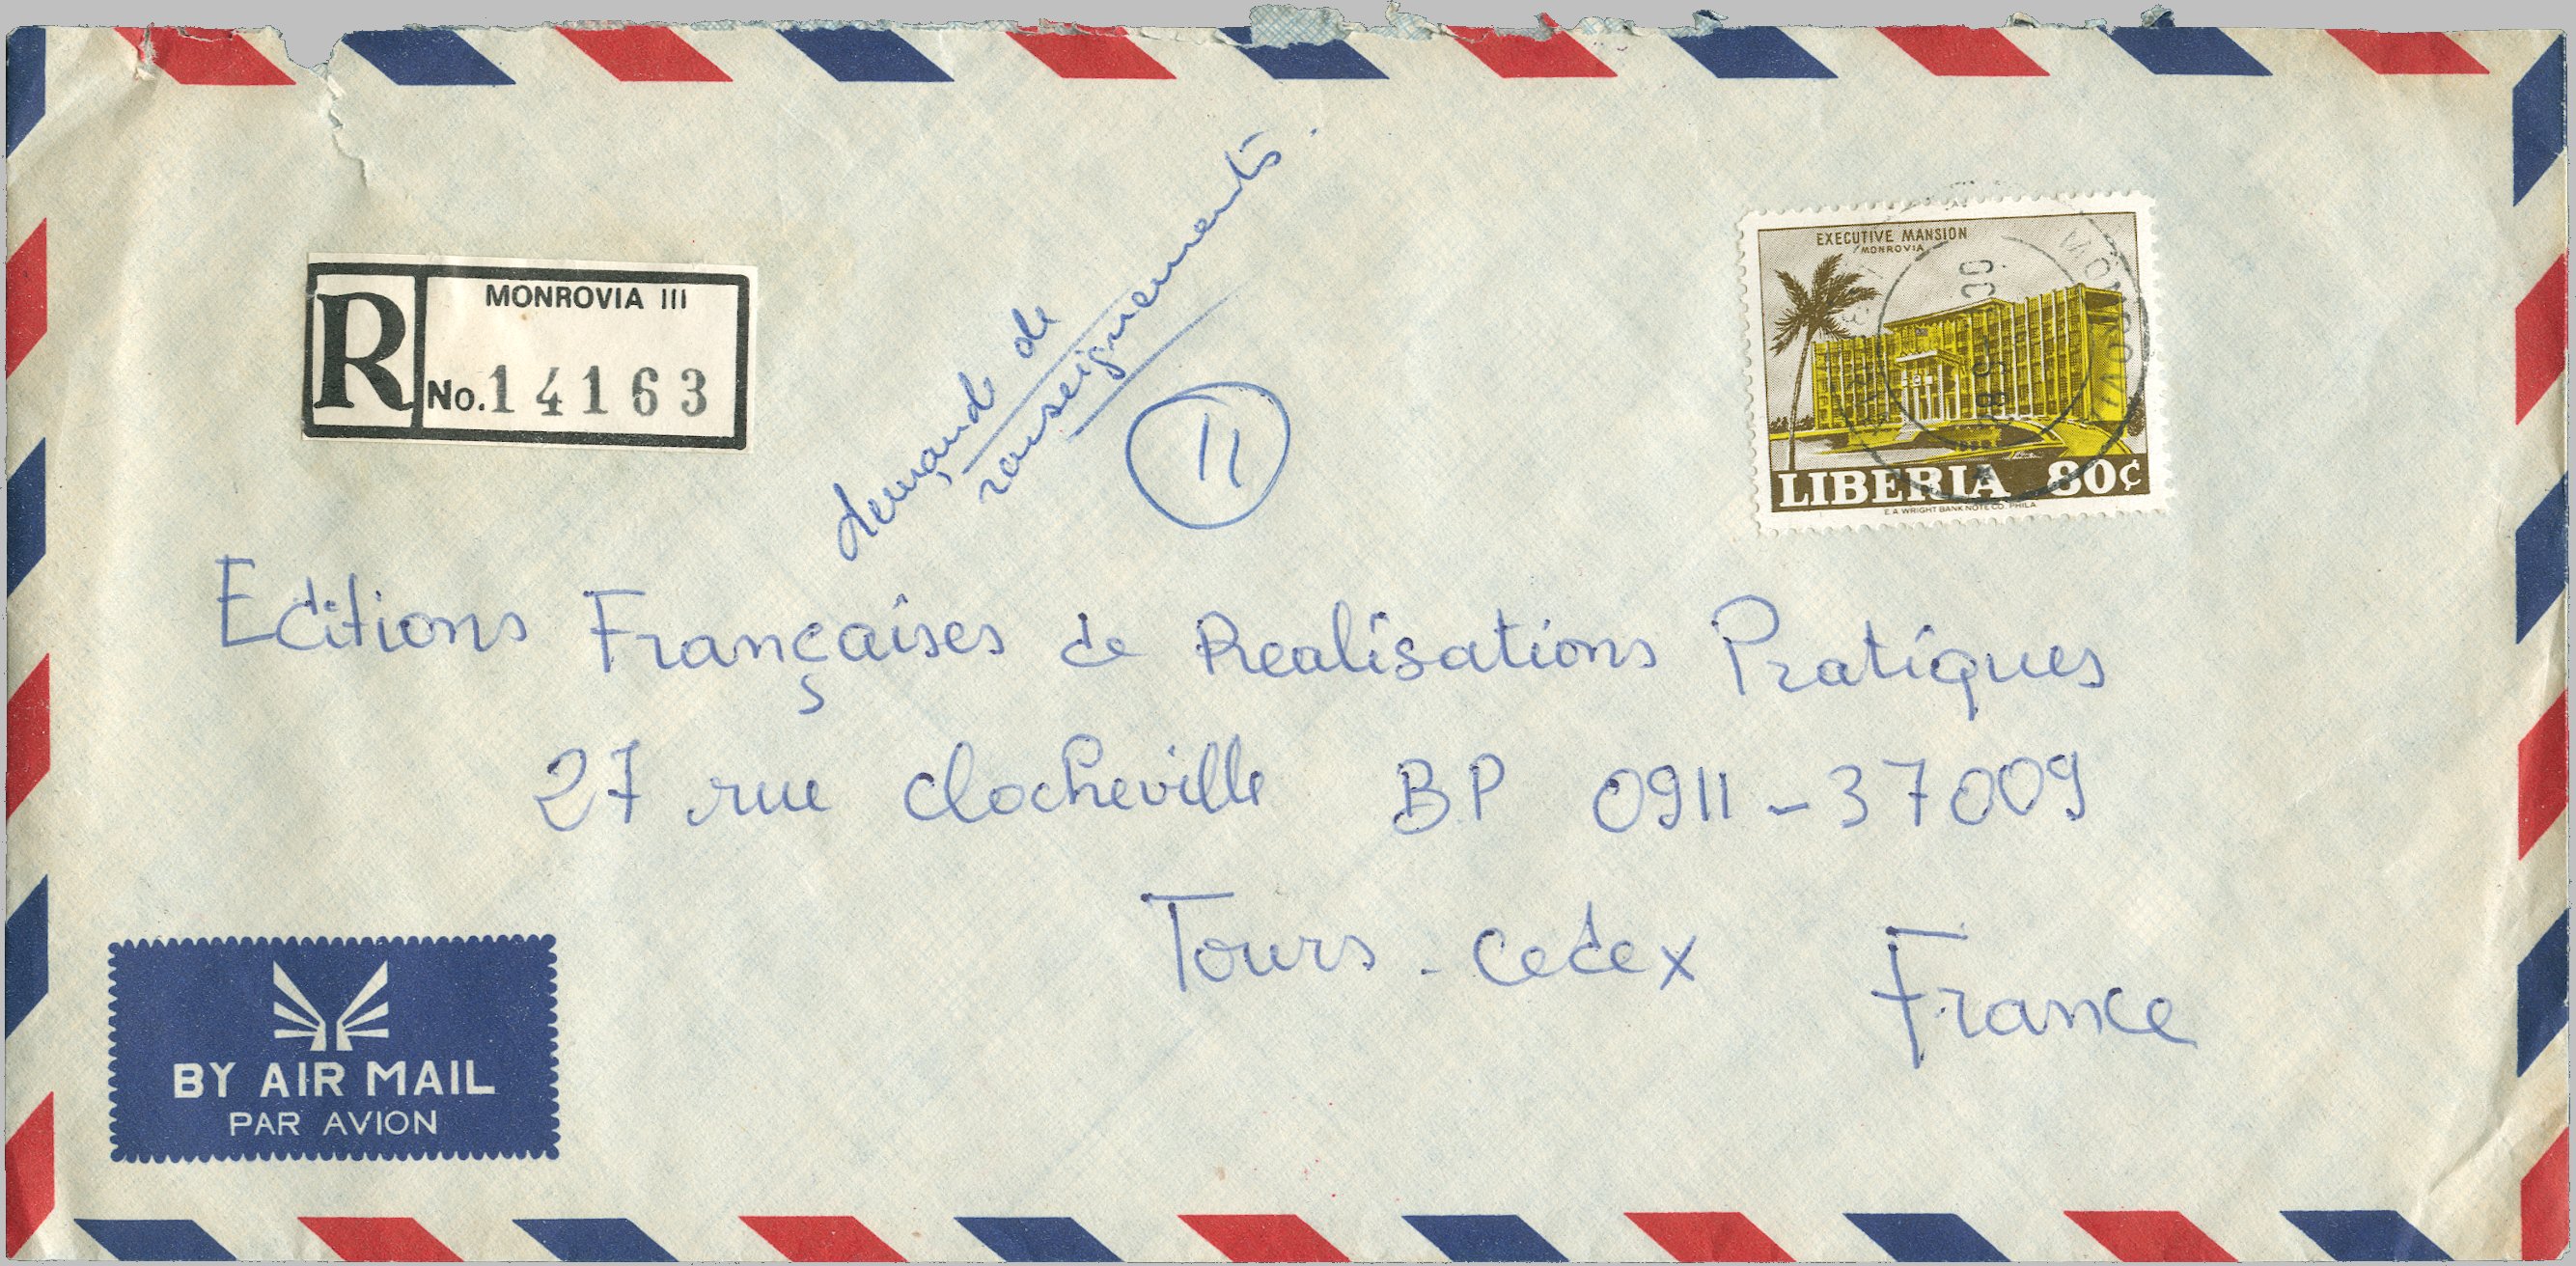 EXECUTIVE MANSION
MONROVIA
LIBERIA 80¢
E A WRIGHT BANK NOTE CO. PHILA
MONROVIA
R
MONROVIA III
No. 14163
demande de
renseignements.
11
Editions Françaises de Realisations Pratiques
27 rue Clocheville BP 0911 - 37009
Tours - Cedex
France
BY AIR MAIL
PAR AVION